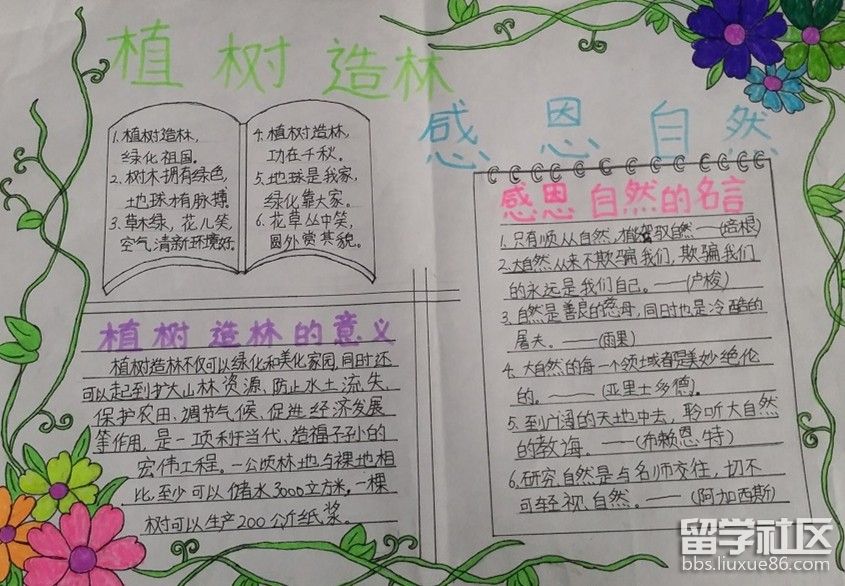 植树造林
感恩自然
1.植树造林,
绿化祖国。
2.树木拥有绿色,
土地球才有脉搏。
3.草木绿,花儿笑,
空气清新环境好
4.植树造林,
功在千秋。
5.地球是我家,
绿化靠大家。
6.花草丛中笑,
园外赏其貌。
植树造林的意义
植树造林不仅可以绿化和美化家园,同时还
可以起到扩大山林资源、防止水土流失、
保护农田、调节气候、促进经济发展
等作用,是一项利于当代、造福子孙的
宏伟工程。一公顷林地与裸地相
比,至少可以储水3000立方米。一棵
树可以生产200公斤纸浆。
感恩自然的名言
1.只有顺从自然,才能驾驭自然——(培根)
2.大自然从来不欺骗我们,欺骗我们
的永远是我们自己。——(卢梭)
3.自然是善良的慈母,同时也是冷酷的
屠夫。——(雨果)
4.大自然的每一个领域都是美妙绝伦
的。——(亚里士多德)。
5.到广阔的天地中去,聆听大自然
的教诲。——(布赖恩特)
6.研究自然是与名师交往,切不
可轻视自然。——(阿加西斯)
留学社区
bbs.liuxue86.com